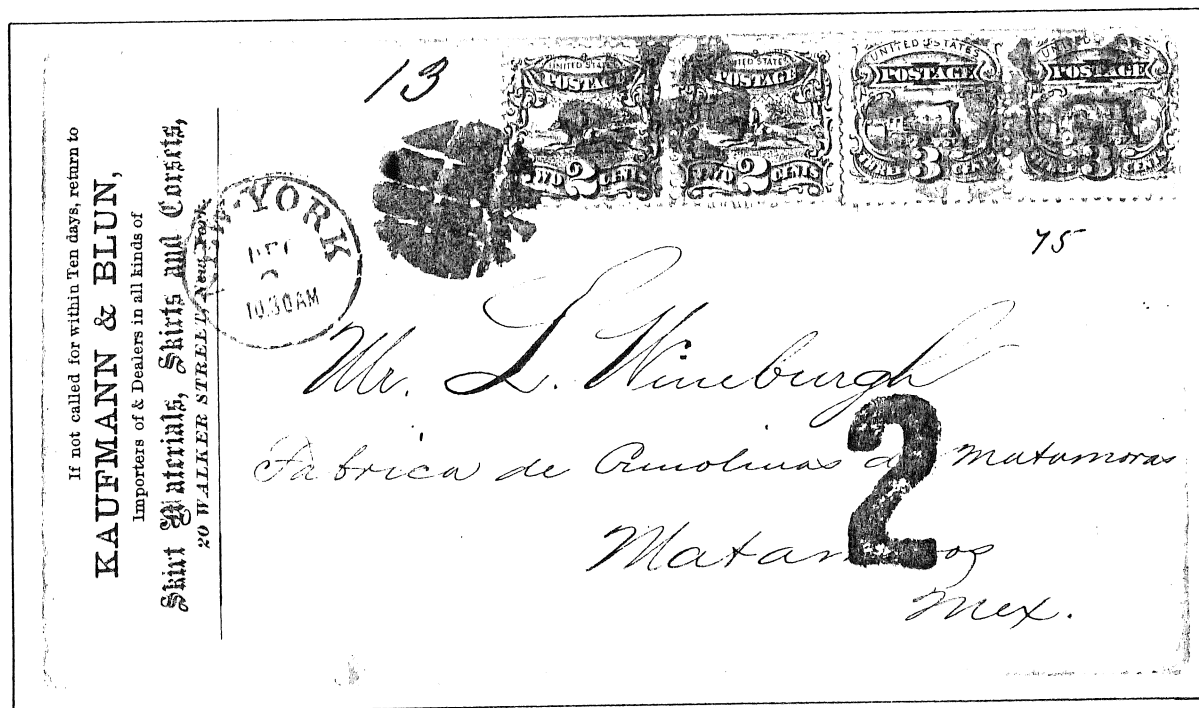 If not called for within Ten days, return to
KAUFMANN & BLUN,
Importers of & Dealers in all kinds of
Skirt Materials, Skirts and Corsets,
20 WALKER STREET, New York.
13
UNITED STATES
POSTAGE
TWO 2 CENTS
UNITED STATES
POSTAGE
TWO 2 CENTS
UNITED STATES
POSTAGE
THREE 3 CENTS
UNITED STATES
POSTAGE
THREE 3 CENTS
NEW-YORK
DEC
10.30AM
75
Mr. L. Wineburgh
Fabrica de Crinolinas de Matamoras
2
Matamoros
Mex.